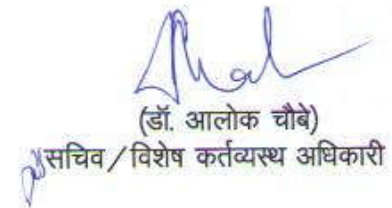 (डॉ. आलोक चौबे)
सचिव / विशेष कर्तव्यस्थ अधिकारी